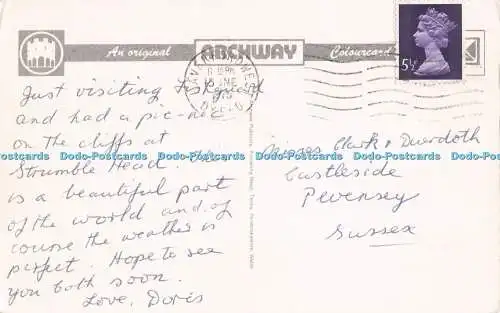 An original ARCHWAY Colourcard
5½
Just visiting Fishguard
and had a pic-nic
on the cliffs at
Strumble Head. This
is a beautiful part
of the world and of
course the weather is
perfect. Hope to see
you both soon.
Love, Doris
Misses Clark & Durdoth
Castleside
Pevensey
Sussex
Dodo-Postcards Dodo-Postcards Dodo-Postcards Dodo-Postcards
Dodo-Postcards Dodo-Postcards Dodo-Postcards Dodo-Postcards